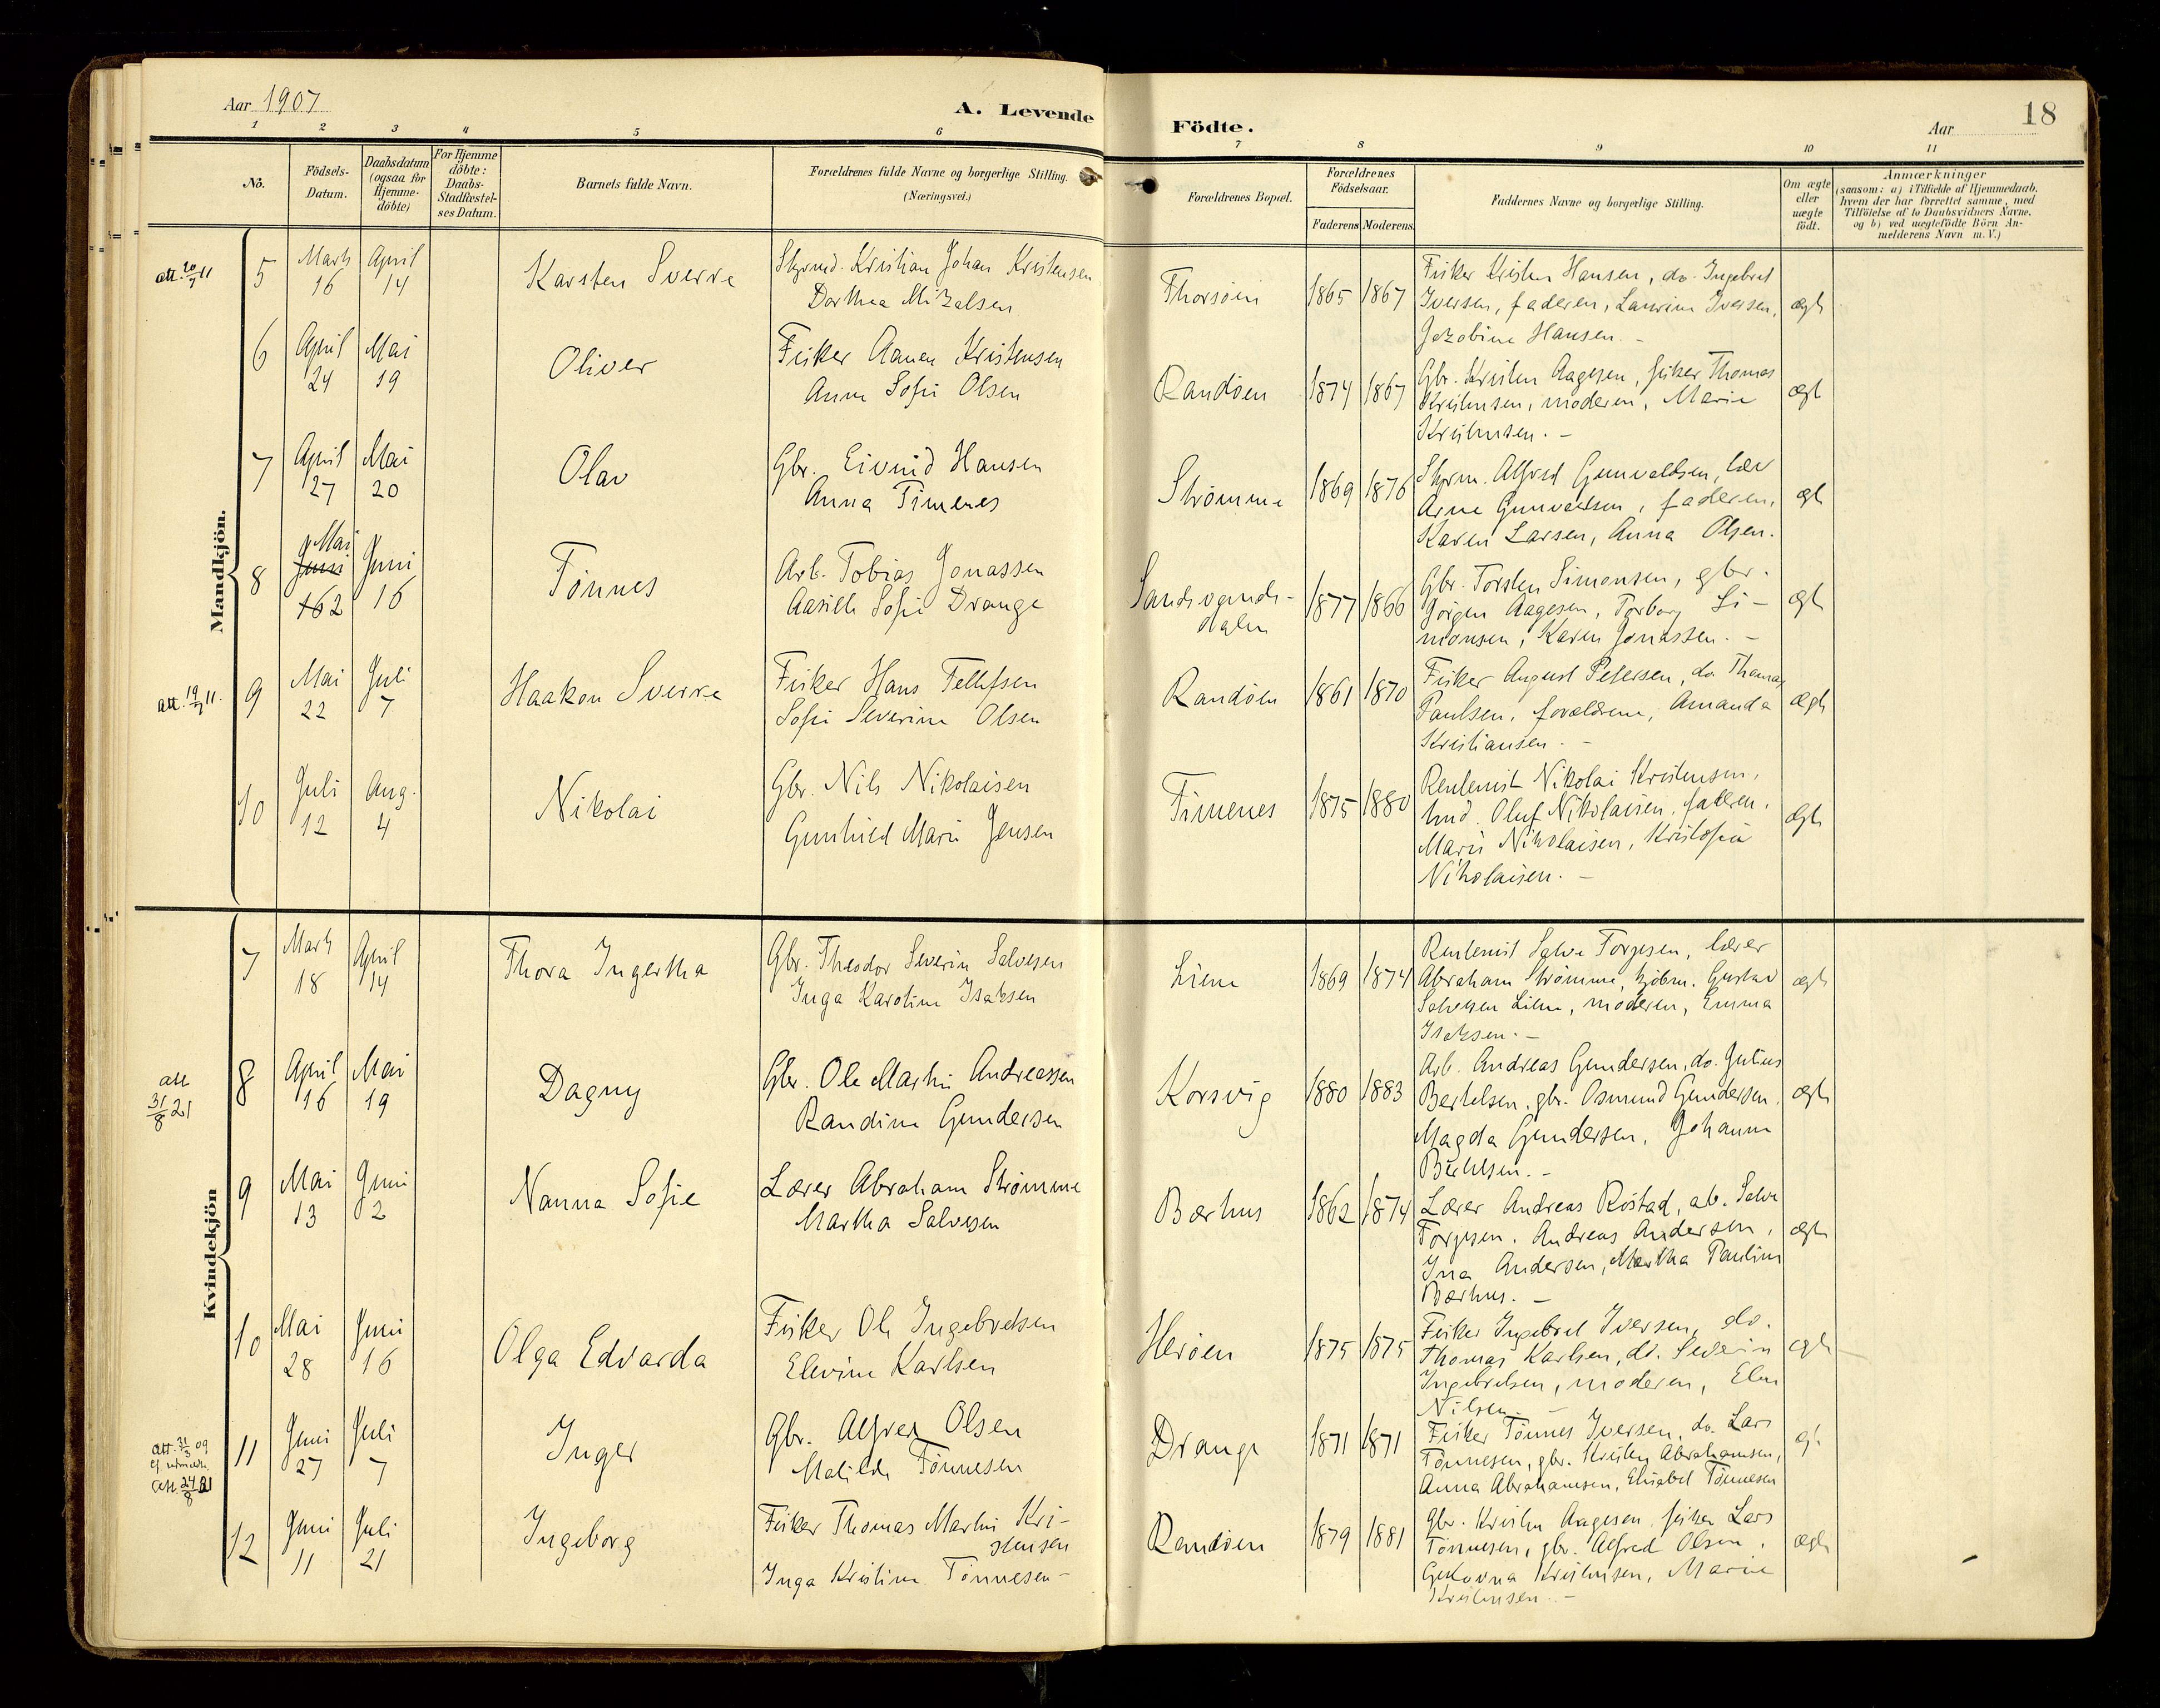 Aar 1907
A. Levende Födte.
Aar
18
1 2 3 4 5 6 7 8 9 10 11
No.
Födsels-
Datum.
Daabsdatum
(ogsaa for
Hjemme-
döbte)
For Hjemme
döbte:
Daabs-
Stadfæstel-
ses Datum.
Barnets fulde Navn.
Forældrenes fulde Navne og borgerlige Stilling.
(Næringsvei.)
Forældrenes Bopæl.
Forældrenes
Födselsaar.
Faderens Moderens
Faddernes Navne og borgerlige Stilling.
Om ægte
eller
uægte
födt.
Anmærkninger
(saasom: a) i Tilfælde af Hjemmedaab,
hvem der har forrettet samme, med
Tilföielse af to Daabsvidners Navne,
og b) ved uægtefödte Börn An-
melderens Navn m. V.)
Mandkjön.
att. 20/7 11
5
Marts 16
April 14
Karsten Sverre
Styrmd. Kristian Johan Kristensen
Dorthea Mikalsen
Thorsöen
1865 1867
Fisker Kristen Hansen, do. Ingebret
Iversen, faderen, Laurine Iversen,
Jakobine Hansen. -
ægte
6
April 24
Mai 19
Oliver
Fisker Aanen Kristensen
Anne Sofie Olsen
Randöen
1874 1867
Gbr. Kristen Aagesen, fisker Thomas
Kristensen, moderen, Marie
Kristensen. -
ægte
7
April 27
Mai 20
Olav
Gbr. Eivind Hansen
Anna Timenes
Strömme
1869 1876
Styrm. Alfred Gunvaldsen, lær
Arne Gunvaldsen, faderen,
Karen Larsen, Anna Olsen.
ægte
8
Mai
Juni
162
Juni 16
Tönnes
Arb. Tobias Jonassen
Aasille Sofie Drange
Sandsvands-
dalen
1877 1866
Gbr. Torsten Simonsen, gbr.
Jörgen Aagesen, Torborg Si-
monsen, Karen Jonassen. -
ægte
att. 19/7 11.
9
Mai 22
Juli 7
Haakon Sverre
Fisker Hans Tellefsen
Sofie Severine Olsen
Randöen
1861 1870
Fisker August Petersen, do. Thomas
Paulsen, forældrene, Amanda
Kristiansen. -
ægte
10
Juli 12
Aug. 4
Nikolai
Gbr. Nils Nikolaisen
Gunhild Marie Jensen
Timenes
1875 1880
Rentenist Nikolai Kristensen,
Oluf Nikolaisen, faderen,
Marie Nikolaisen, Kristofia
Nikolaisen. -
ægte
Kvindekjön
7
Marts 18
April 14
Thora Ingertha
Gbr. Theodor Severin Salvesen
Inga Karoline Isaksen
Liene
1869 1874
Rentenist Salve Torgesen, lærer
Abraham Strömme, kjöbm. Gustav
Salvesen Liene, moderen, Emma
Isaksen. -
ægte
att
31/8 21
8
April 16
Mai 19
Dagny
Gbr. Ole Martin Andreassen
Randine Gundersen
Korsvig
1880 1883
Arb. Andreas Gundersen, do. Julius
Bertelsen, gbr. Osmund Gundersen,
Magda Gundersen, Johanne
Bertelsen. -
ægte
9
Mai 13
Juni 2
Nanna Sofie
Lærer Abraham Strömme
Martha Salvesen
Bærhus
1862 1874
Lærer Andreas Röstad, Salve
Torgesen, Andreas Andersen,
Ina Andersen, Martha Pauline
Bærhus. -
ægte
10
Mai 28
Juni 16
Olga Edvarda
Fisker Ole Ingebretsen
Elevine Karlsen
Heröen
1875 1875
Fisker Ingebret Iversen, do.
Thomas Karlsen, do. Severin
Ingebretsen, moderen, Elen
Nilsen. -
ægte
att. 31/3 09
att. 24/8 21
11
Juni 27
Juli 7
Inger
Gbr. Alfred Olsen
Matilde Tönnesen
Drange
1871 1871
Fisker Tönnes Iversen, do. Lars
Tönnesen, gbr. Kristen Abrahamsen,
Anna Abrahamsen, Elisabet Tönnesen
12
Juni 11
Juli 21
Ingeborg
Fisker Thomas Martin Kri-
stensen
Inga Kristine Tönnesen -
Randöen
1879 1881
Gbr. Kristen Aagesen, fisker Lars
Tönnesen, gbr. Alfred Olsen,
Kristensen, Marie
Kristensen. -
ægte